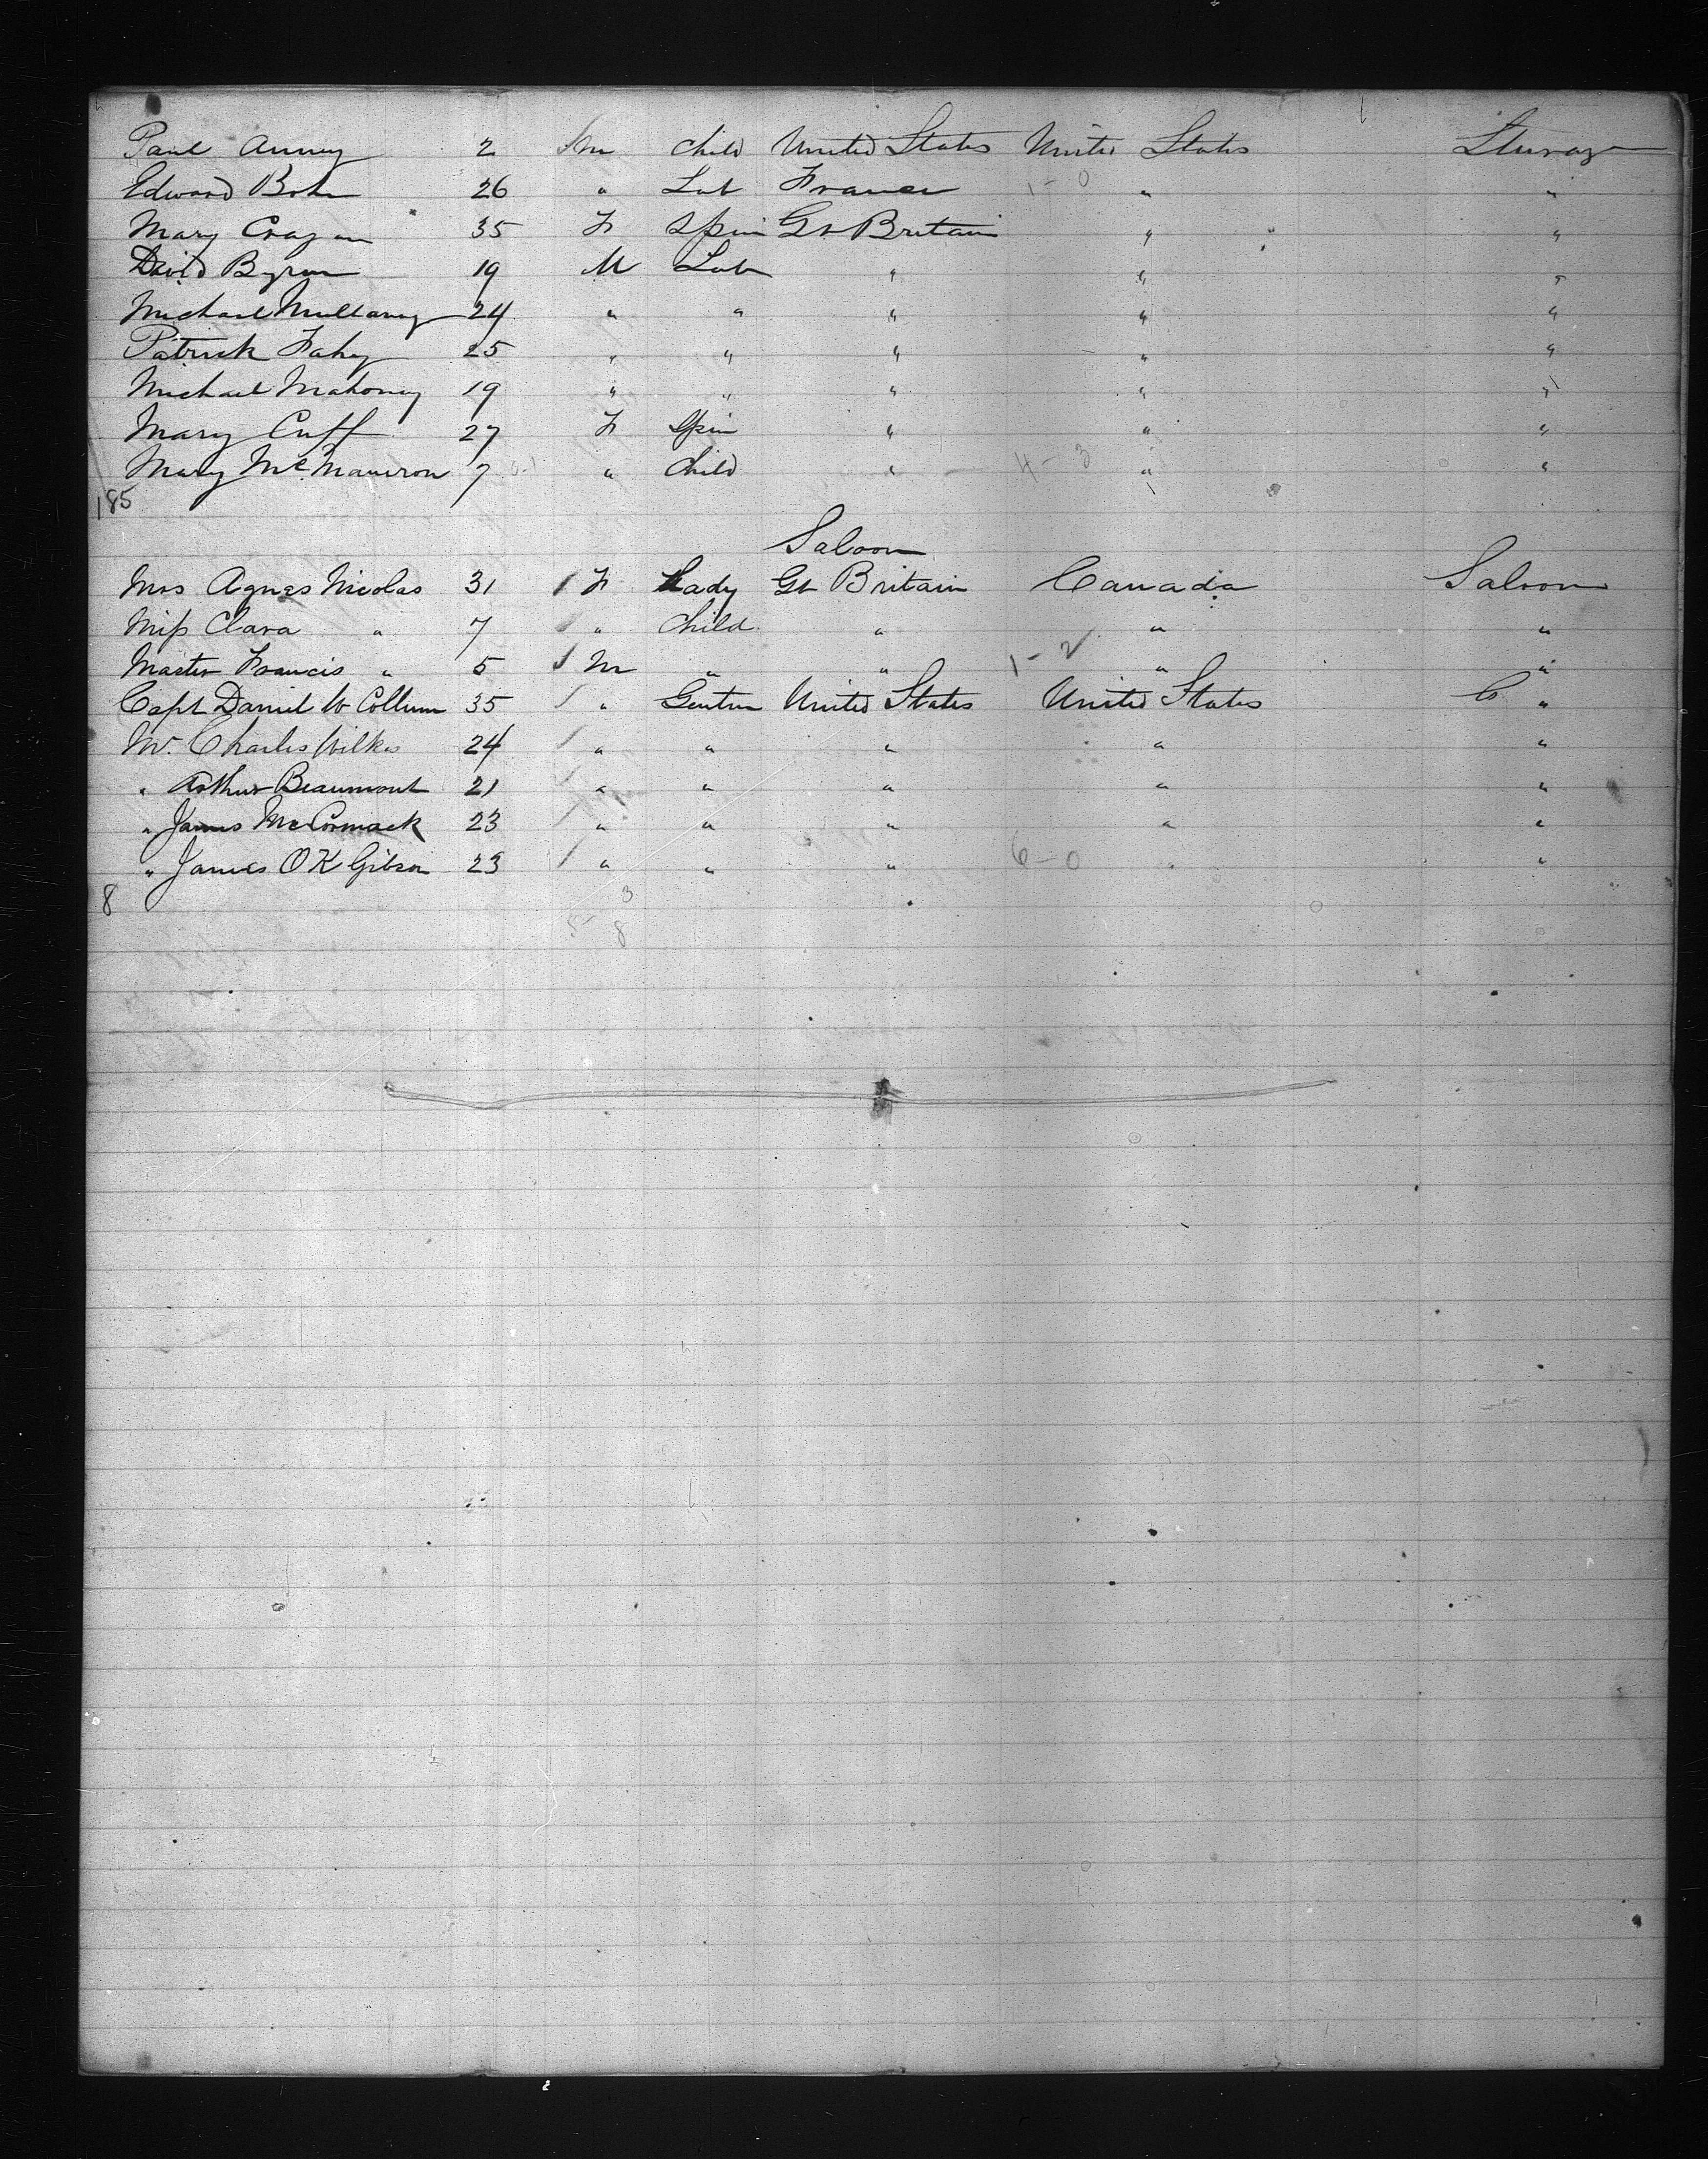 Paul Anney 2 M Child United States United States Steerage
Edward Bohn 26 " Lab France 1-0 " "
Mary Cragan 35 F Spin Gt Britain " "
David Byron 19 M Lab " " "
Michael Mullaney 24 " " " " "
Patrick Fahy 25 " " " " "
Michael Mahoney 19 " " " " "
Mary Cuff 27 F Spin " " "
Mary McManeron 7 " Child " 4-3 " "
185
Saloon
Mrs Agnes Nicolas 31 F Lady Gt Britain Canada Saloon
Miss Clara " 7 " Child " " "
Master Francis " 5 M " " 1-2 " "
Capt Daniel W Collum 35 " Gentm United States United States C "
Mr. Charles Wilkes 24 " " " " "
" Arthur Beaumont 21 " " " " "
" James McCormack 23 " " " " "
" James O K Gibson 23 " " " 6-0 " "
8 3
5 8